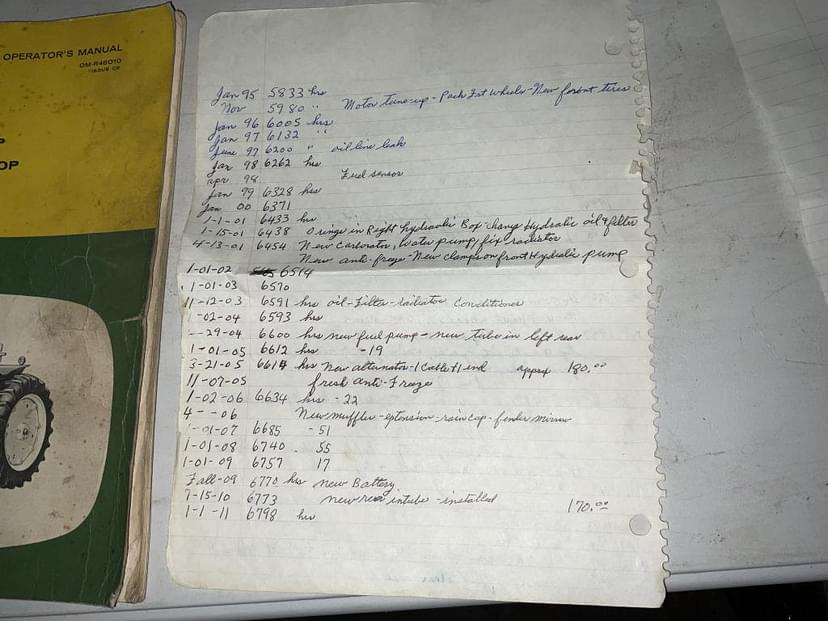 OPERATOR'S MANUAL
OM-R46010
ISSUE C8
OP
Jan 95 5833 hrs
Nov 5980 " Motor tune-up - Pack Frt Wheels - New foront tires
Jan 96 6005 hrs
Jan 97 6132 "
June 97 6200 " oil line leak
Jan 98 6262 hrs
apr 98 Fuel sensor
Jan 99 6328 hrs
Jan 00 6371
1-1-01 6433 hrs
1-15-01 6438 O rings in Right Hydraulic Box - change Hydralic oil & filter
4-13-01 6454 New Carborator, Water pump, fix radiator
New anti-freeze - New clamps on front Hydralic pump
1-01-02 6514
1-01-03 6570
11-12-03 6591 hrs oil-Filter-radiator Conditioner
1-02-04 6593 hrs
-29-04 6600 hrs new fuel pump - new tube in left rear
1-01-05 6612 hrs -19
3-21-05 6614 hrs New alternator - 1 Cable & 1 end appox 180.00
11-07-05 fresh anti-Freeze
1-02-06 6634 hrs - 22
4 - -06 New muffler - extension - rain cap - fender mirror
1-01-07 6685 - 51
1-01-08 6740 - 55
1-01-09 6757 17
Fall-09 6770 hrs new Battery
7-15-10 6773 new rear intube - installed 170.00
1-1-11 6798 hrs